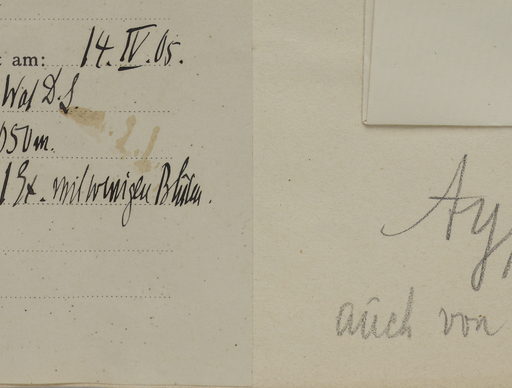 am: 14. IV. 05.
050 m.
1 Ex. mit wenigen Blüten.
auch von